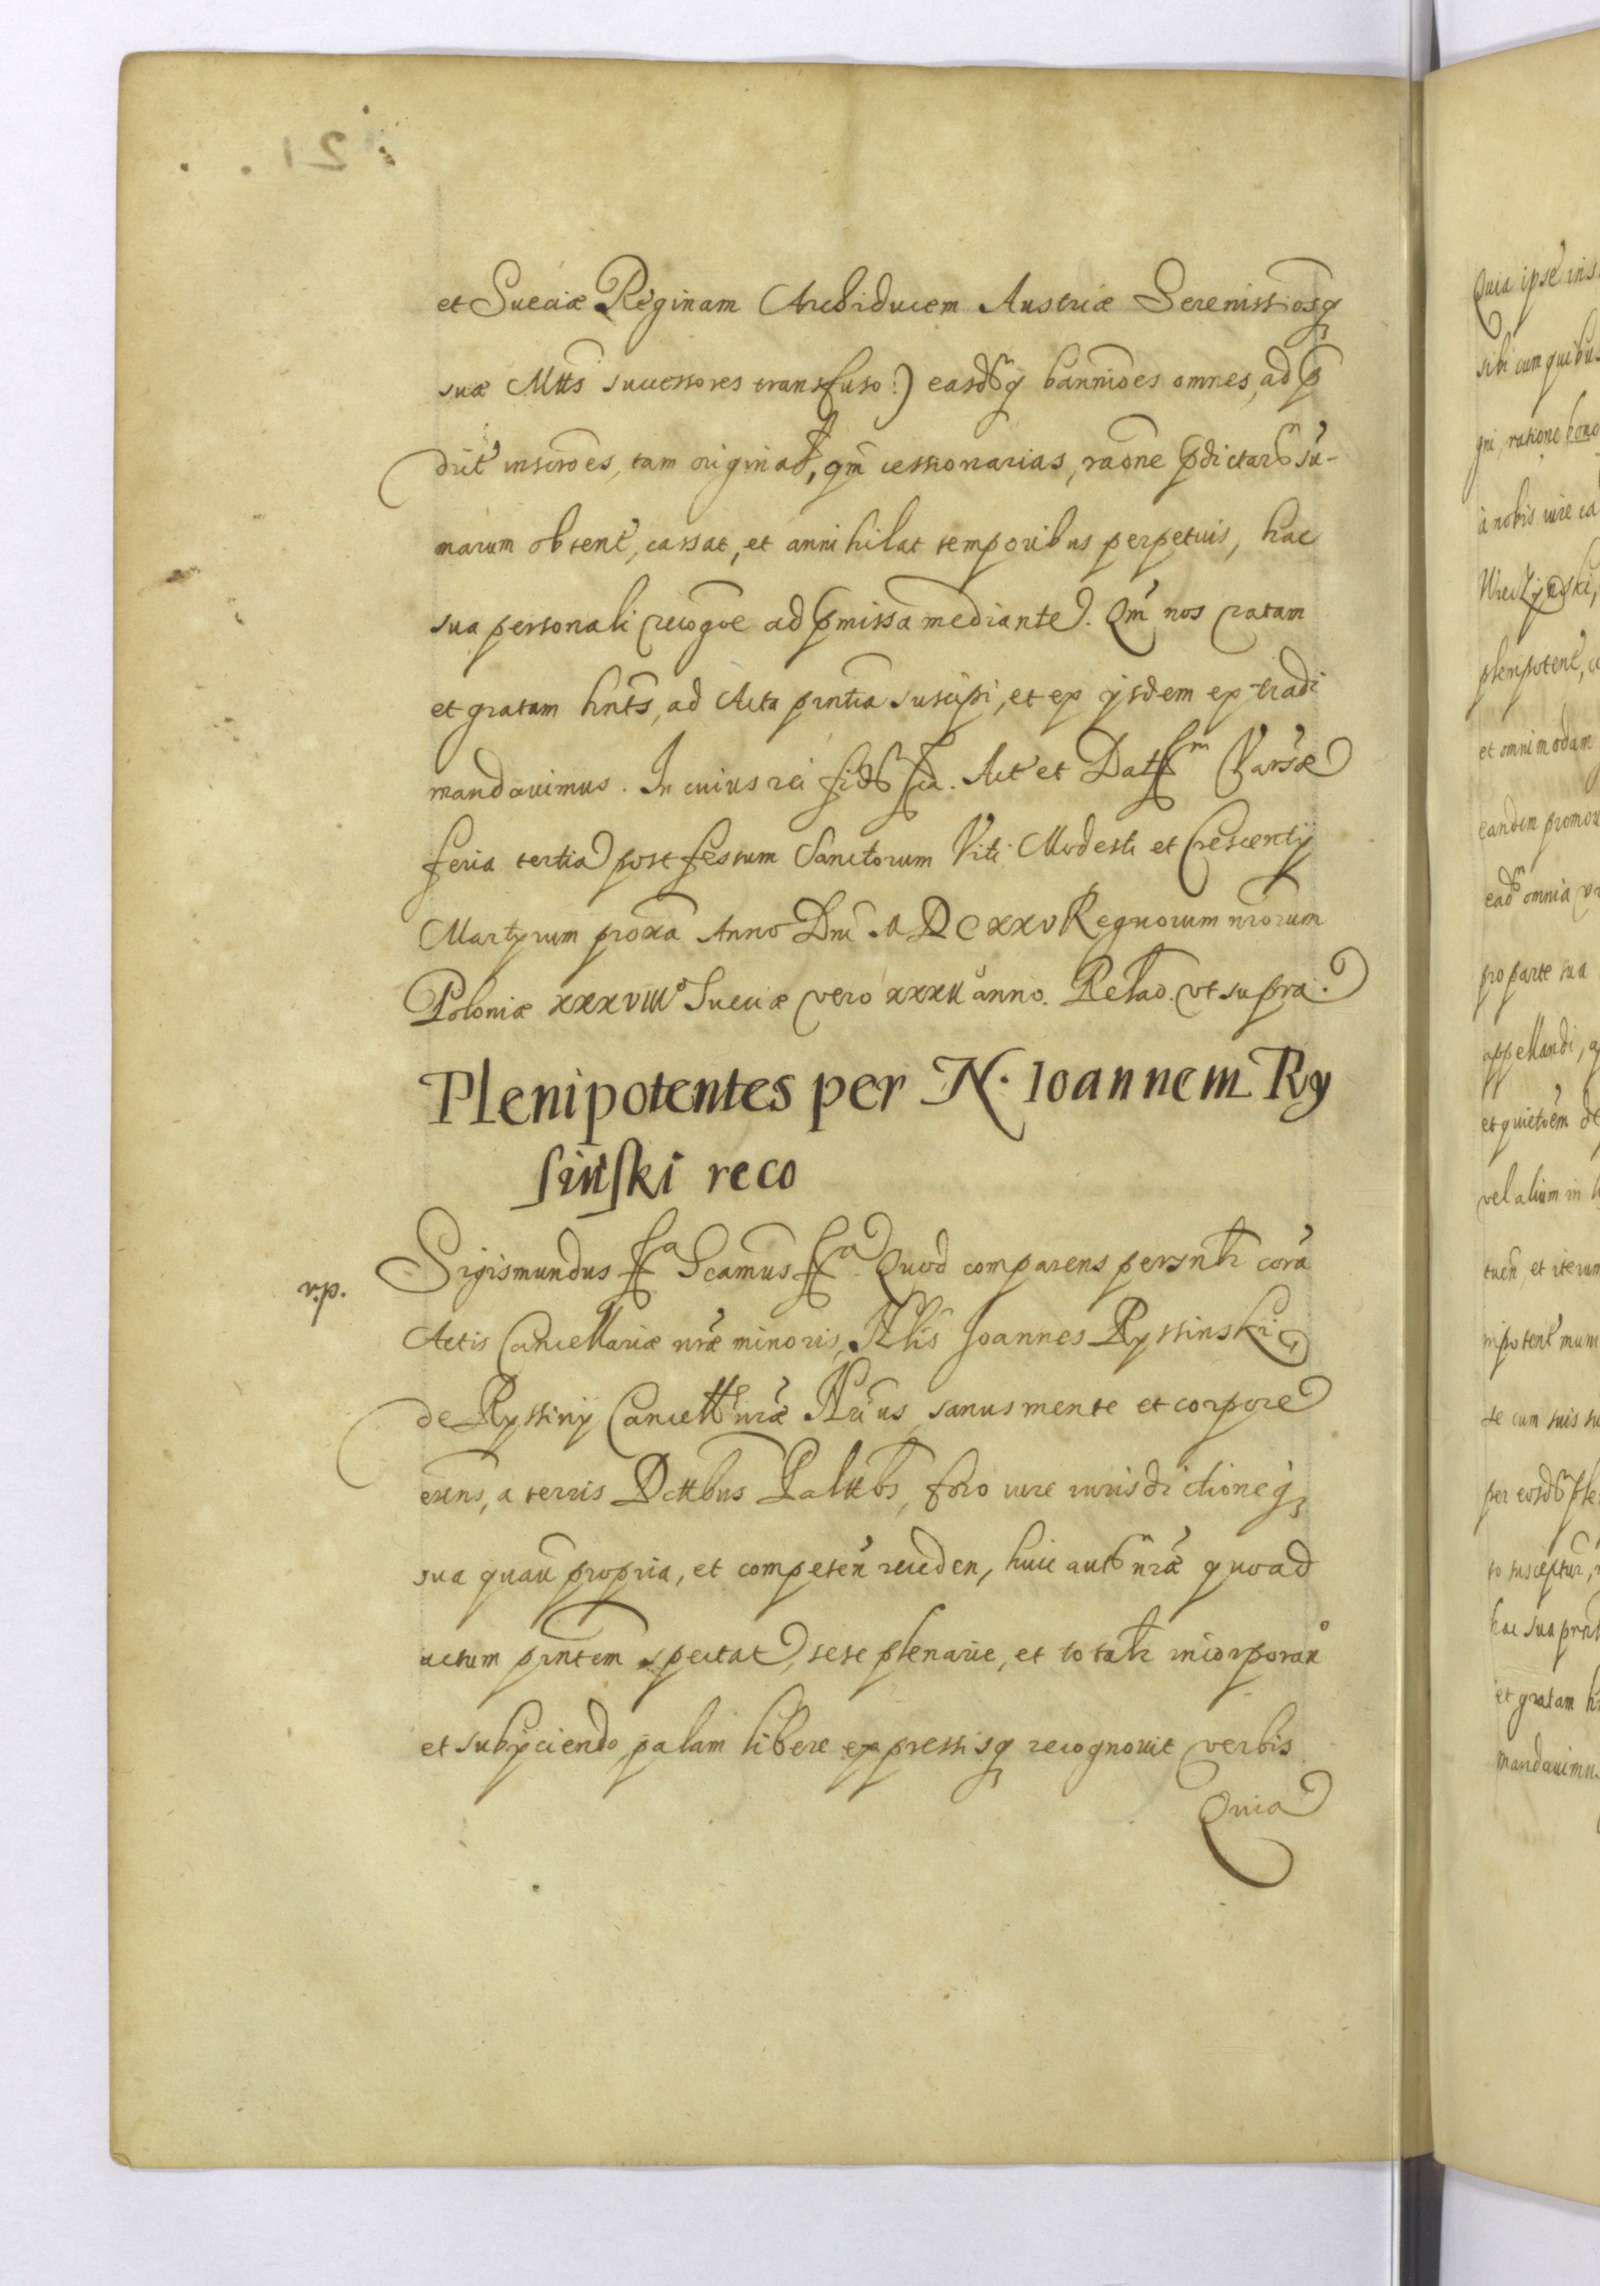 et Sueciæ Reginam Archiducem Austriæ Serenissiosq
suæ Mttis successores transfuso:) easdq bannioēs omnes, ad
inscroēs, tam original, qm cessionarias, raōne pdictar su-
marum obtent, cassat, et annihilat temporibus perpetuis, hac
sua personali recogōe ad pmissa mediante. Qm nos ratam
et gratam hnts, ad Acta pntia suscipi, et ex ijsdem extradi
mandauimus. In cuius rei fid. Act et Dat Varsæ
feria tertia post festum Sanctorum Viti Modesti et Crescentij
Martyrum proxa Anno Dni MDCXXV Regnorum nrorum
Poloniæ XXXVIII° Sueciæ vero XXXII anno. Relao. vt supra.
Plenipotentes per N. Ioannem Ry
sinski reco
Sigismundus Scamus Quod comparens persnlr corā
v.p.
Actis Cancellariæ nræ minoris, Nblis Joannes Ryssinski
de Ryssiny Cancell nræ Nrius sanus mente et corpore
exns, a terris Dcttbus Palttbs, foro iure iurisdictioneq
sua quauu propria, et competen receden, huic aut nræ quoad
actum pntem spectat, sese plenarie, et totalr incorporan
et subijciendo palam libere expressisq recognouit verbis
Quia
Quia ipse ins
sibi cum quibus
gni, ratione bono
à nobis iure ca
plenipotent, c
et omnimodam
eandem promou
ead omnia
pro parte sua
appellandi, q
et quietoēm de
vel alium in
tuen, et iterum
nipotent muni
se cum suis su
per eosd ple
to susceptur,
hac sua prnt
et gratam h
mandauimu